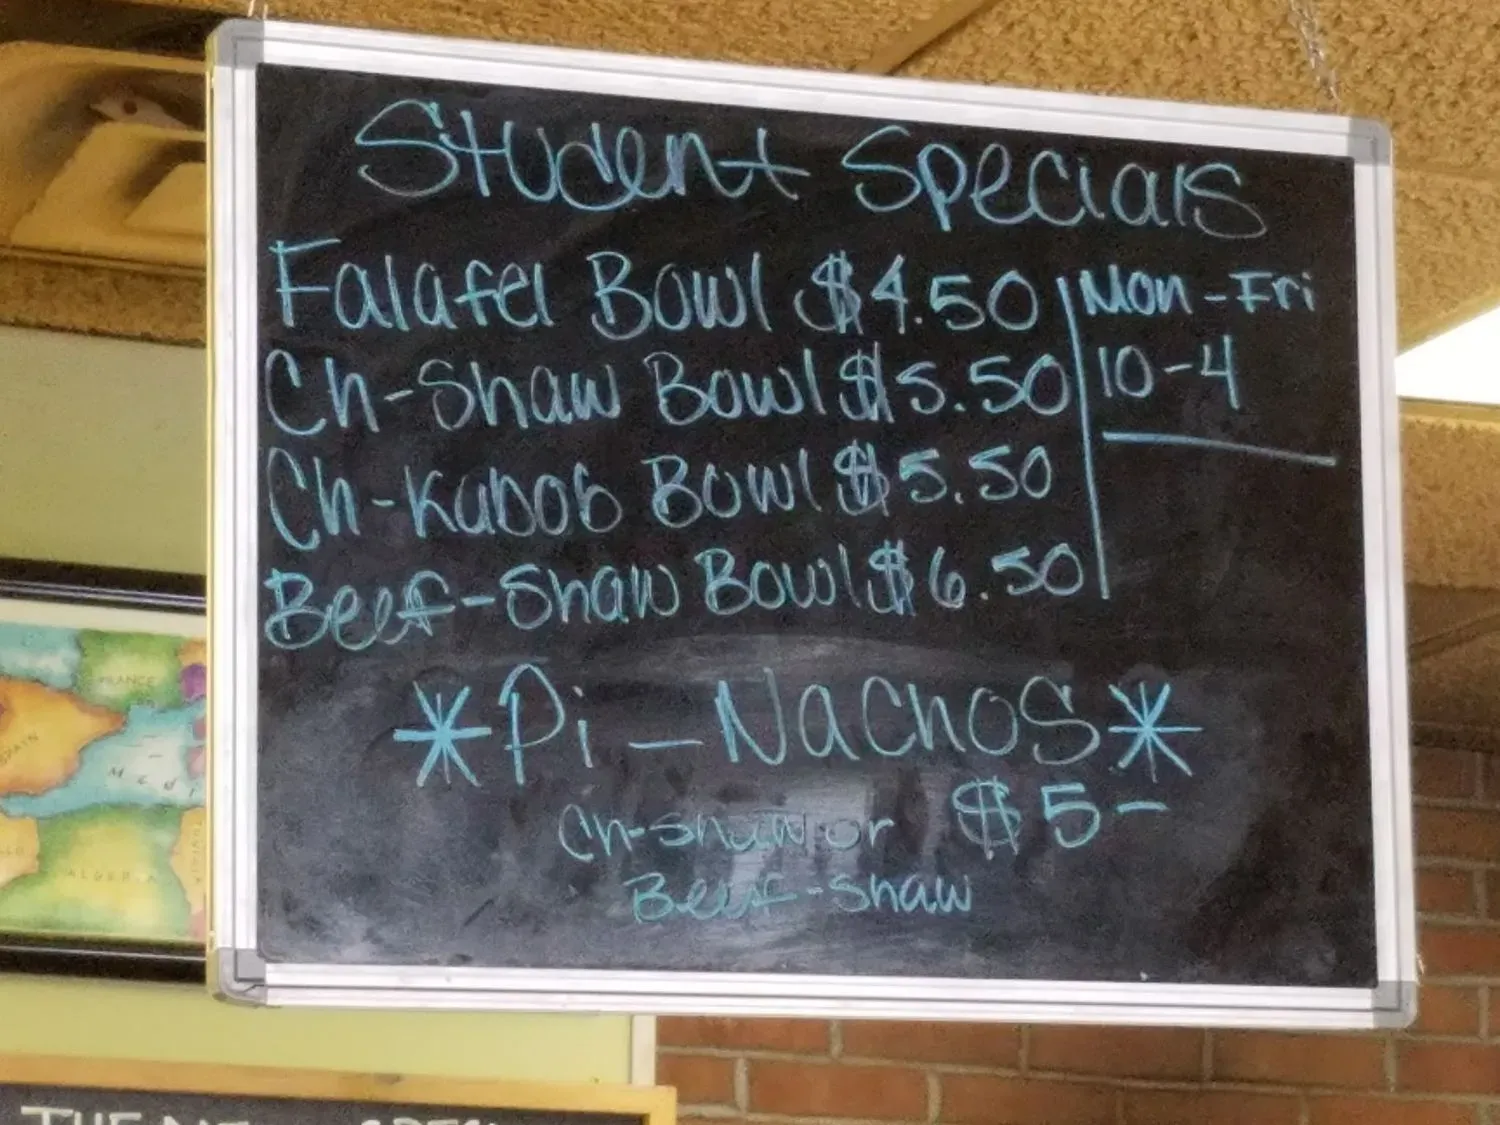 Student Specials
Falafel Bowl $4.50
Mon-Fri
Ch-Shaw Bowl $5.50
10-4
Ch-Kabob Bowl $5.50
Beef-Shaw Bowl $6.50
*Pi-Nachos*
Ch-shaw or $5-
Beef-shaw
FRANCE
SPAIN
Med
ALGERIA
THE